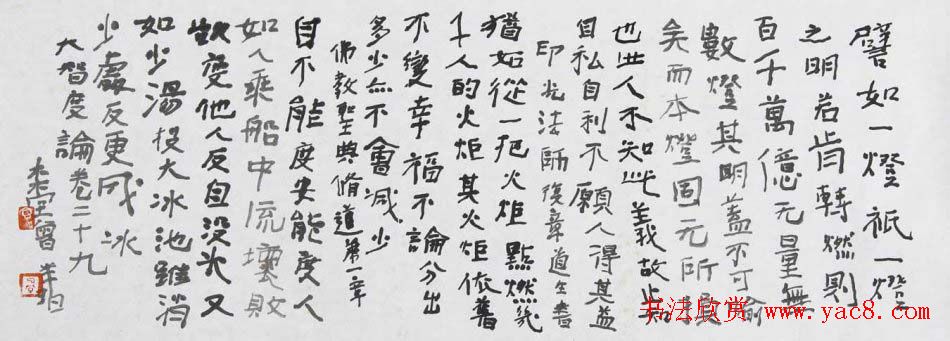 譬如一燈祇一燈
之明若肯轉燃則
百千萬億无量無
數燈其明蓋不可喻
矣而本燈固元所損
也世人不知此義故止知
自私自利不願人得其益
印光法師復章道生書
猶如從一把火炬點燃幾
千人的火炬其火炬依舊
不變幸福不論分出
多少亦不會減少
佛教聖典脩道第一章
自不能度安能度人
如人乘船中流壞敗
欲變他人反自沒水又
如少湯投大冰池雖消
少處反更成冰
大智度論卷二十九
書法欣賞 www.yac8.com